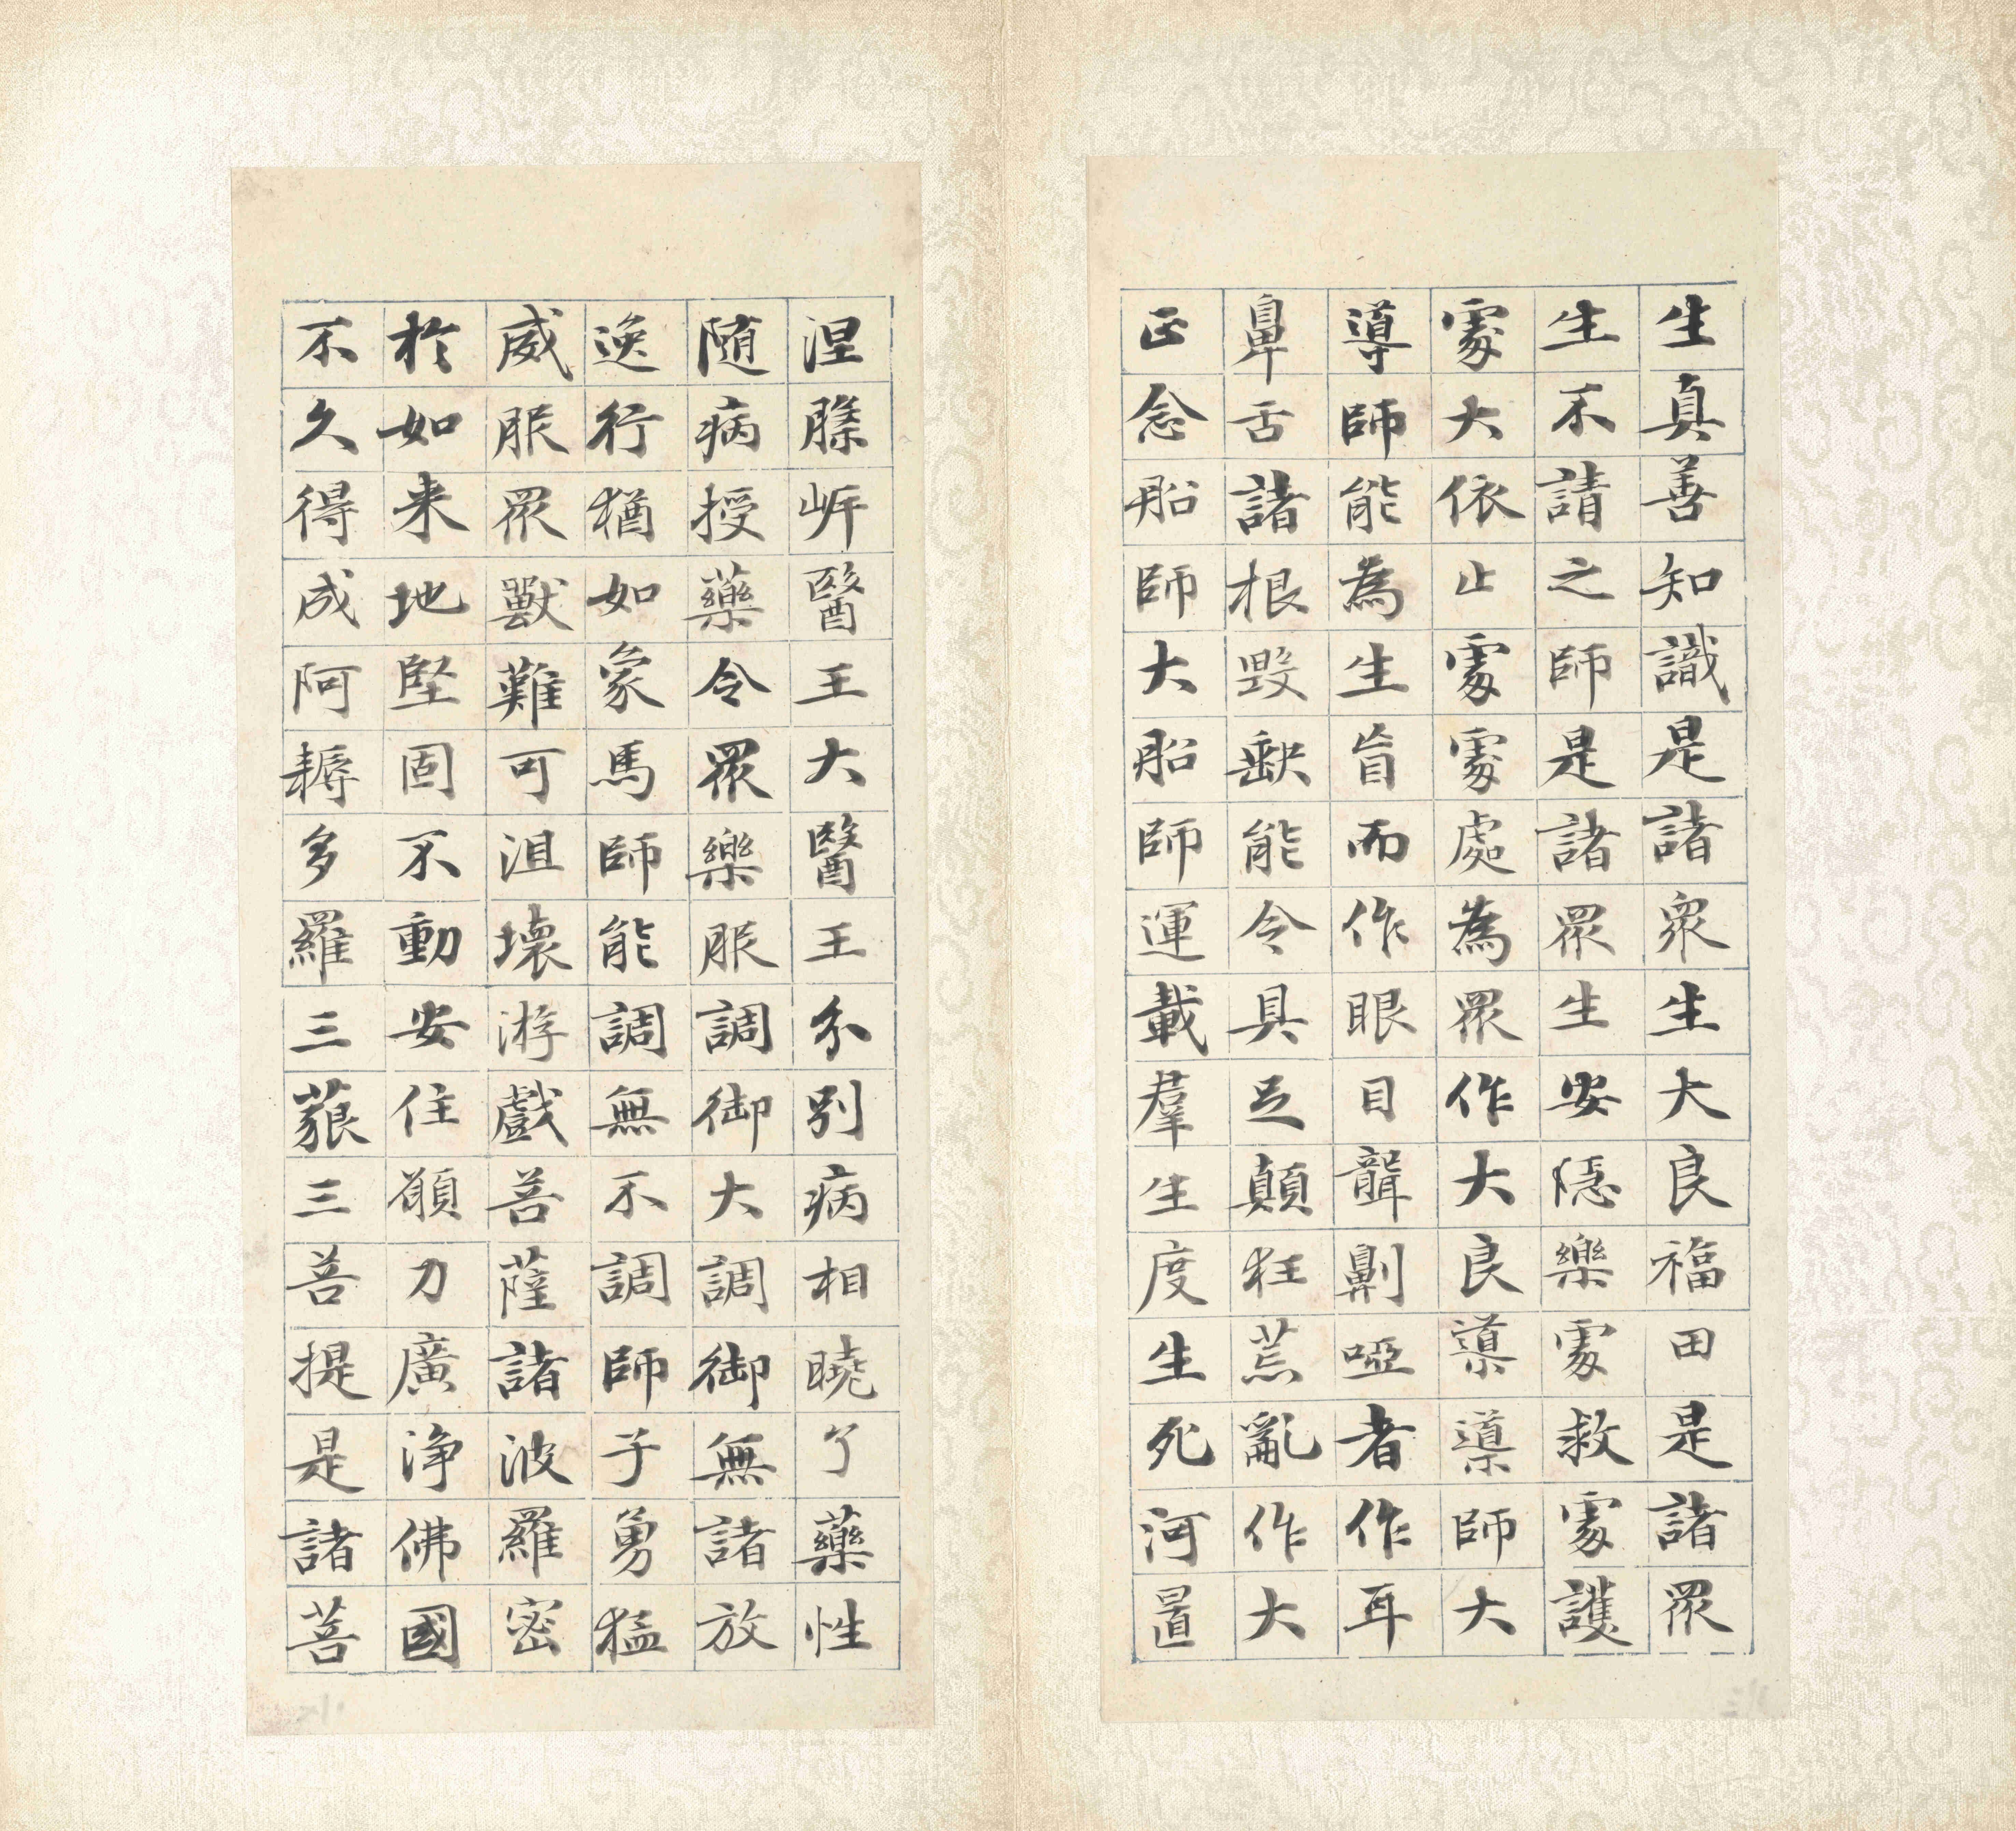 生真善知識是諸衆生大良福田是諸眾
生不請之師是諸眾生安隱樂處救處護
處大依止處處處為眾作大良導導師大
導師能為生盲而作眼目聾劓啞者作耳
鼻舌諸根毀缺能令具足顛狂荒亂作大
正念船師大船師運載羣生度生死河置
涅槃岸醫王大醫王分別病相曉了藥性
隨病授藥令眾樂服調御大調御無諸放
逸行猶如象馬師能調無不調師子勇猛
威服眾獸難可沮壞游戲菩薩諸波羅密
於如来地堅固不動安住願力廣淨佛國
不久得成阿耨多羅三藐三菩提是諸菩